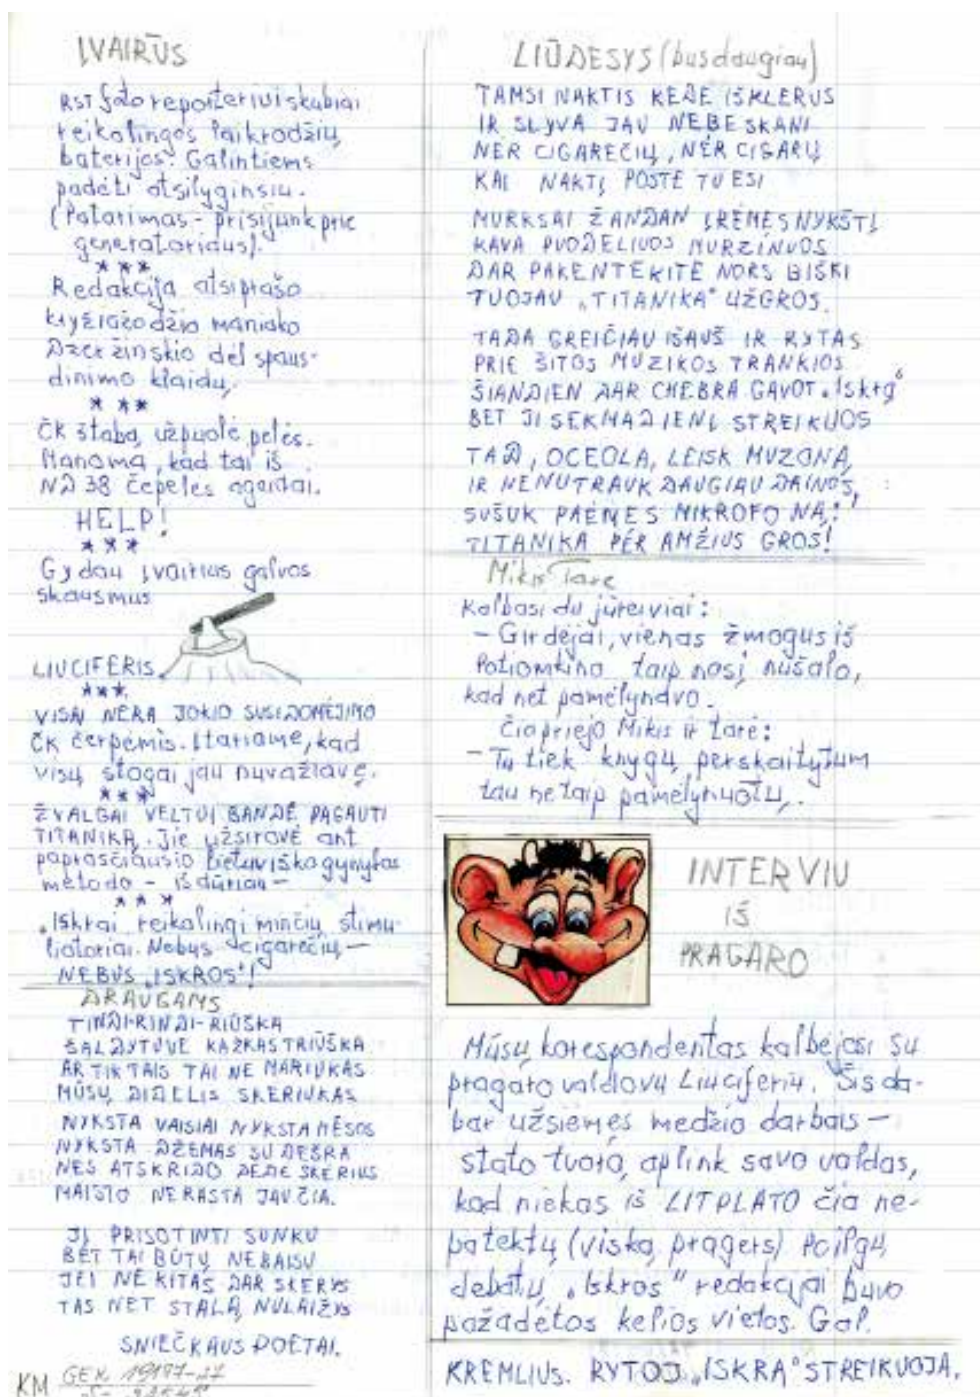 ĮVAIRŪS
RST fotoreporteriui skubiai
reikalingos laikrodžių
baterijos. Galintiems
padėti atsilyginsiu.
(Patarimas - prisijunk prie
generatoriaus).
***
Redakcija atsiprašo
kryžiažodžio maniako
Dzeržinskio dėl spaus-
dinimo klaidų.
***
ČK štabą užpuolė pelės.
Manoma, kad tai iš
ND 38 čepelės agaidai.
HELP!
***
Gydau įvairius galvos
skausmus
LIUCIFERIS
***
VISAI NĖRA JOKIO SUSIDOMĖJIMO
ČK čerpėmis. Įtariame, kad
visų stogai jau nuvažiavę.
***
ŽVALGAI VELTUI BANDĖ PAGAUTI
TITANIKĄ. Jie užsirovė ant
paprasčiausio lietuviško gynybos
metodo - iš dūrian -
***
„Iskrai reikalingi minčių stimu-
liatoriai. Nebus cigarečių -
NEBUS „ISKROS"!
DRAUGAMS
TINDI-RINDI-RIŪŠKA
ŠALDYTUVE KAŽKAS TRIŪŠKA
AR TIK TAIS TAI NE MARIUKAS
MŪSŲ DIDELIS SKERIUKAS
NYKSTA VAISIAI NYKSTA MĖSOS
NYKSTA DŽEMAS SU DEŠRA
NES ATSKRIDO DĖDĖ SKĖRIUS
MAISTO NERASTA JAU ČIA.
JĮ PRISOTINTI SUNKU
BET TAI BŪTŲ NEBAISU
JEI NE KITAS DAR SKERYS
TAS NET STALĄ NULAIŽYS
SNIEČKAUS POETAI.
KM GEK
LIŪDESYS (bus daugiau)
TAMSI NAKTIS KĖDĖ IŠKLERUS
IR SLYVA JAU NEBESKANI
NĖR CIGAREČIŲ, NĖR CIGARŲ
KAI NAKTĮ POSTE TU ESI
MURKSAI ŽANDAN ĮRĖMĘS NYKŠTĮ
KAVA PUODELIUOS MURZINUOS
DAR PAKENTĖKITE NORS BIŠKĮ
TUOJAU „TITANIKA" UŽGROS.
TADA GREIČIAU IŠAUŠ IR RYTAS
PRIE ŠITOS MUZIKOS TRANKIOS
ŠIANDIEN DAR CHEBRA GAVOT „Iskrą"
BET JI SEKMADIENĮ STREIKUOS
TAD, OCEOLA, LEISK MUZONĄ
IR NENUTRAUK DAUGIAU DAINOS,
SUŠUK PAĖMĘS MIKROFONĄ:
TITANIKA PER AMŽIUS GROS!
Mikis Tarė
Kalbasi du jūreiviai:
- Girdėjai, vienas žmogus iš
Potiomkino taip nosį nušalo,
kad net pamėlynavo.
Čia priėjo Mikis ir tarė:
- Tu tiek knygų perskaitytum
tau ne taip pamėlynuotų.
INTERVIU
IŠ
PRAGARO
Mūsų korespondentas kalbėjosi su
pragaro valdovu Liuciferiu. Šis da-
bar užsiėmęs medžio darbais -
stato tvorą aplink savo valdas,
kad niekas iš LITPLATO čia ne-
patektų (viską pragers) Po ilgų
debatų „Iskros" redakcijai buvo
pažadėtos kelios vietos. Gal.
KREMLIUS. RYTOJ „ISKRA" STREIKUOJA.